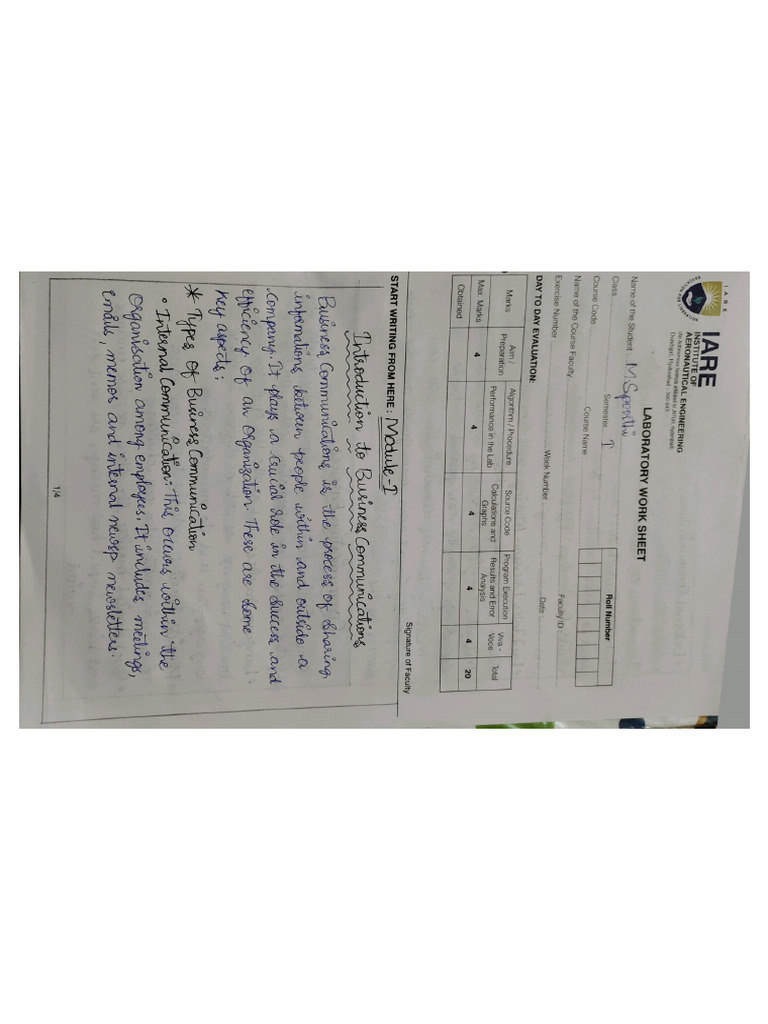 IARE
IARE
INSTITUTE OF
AERONAUTICAL ENGINEERING
Dundigal, Hyderabad - 500 043
LABORATORY WORK SHEET
Name of the Student M. Spoorthi
Roll Number
Class Semester I
Course Code Course Name
Name of the Course Faculty Faculty ID
Exercise Number Work Number Date
DAY TO DAY EVALUATION:
Marks Aim / Preparation Algorithm / Procedure Performance in the Lab Source Code Calculations and Graphs Program Execution Results and Error Analysis Viva - Voce Total
Max. Marks 4 4 4 4 4 20
Obtained
Signature of Faculty
START WRITING FROM HERE : Module-I
Introduction to Business Communications
Business Communications is the process of sharing
informations between people within and outside a
company. It plays a crucial role in the success and
efficiency of an organization. These are some
key aspects:
* Types Of Business Communication
• Internal Communication: This occurs within the
Organisation among employees. It includes meetings,
emails, memos and internal newsp newsletters.
1/4